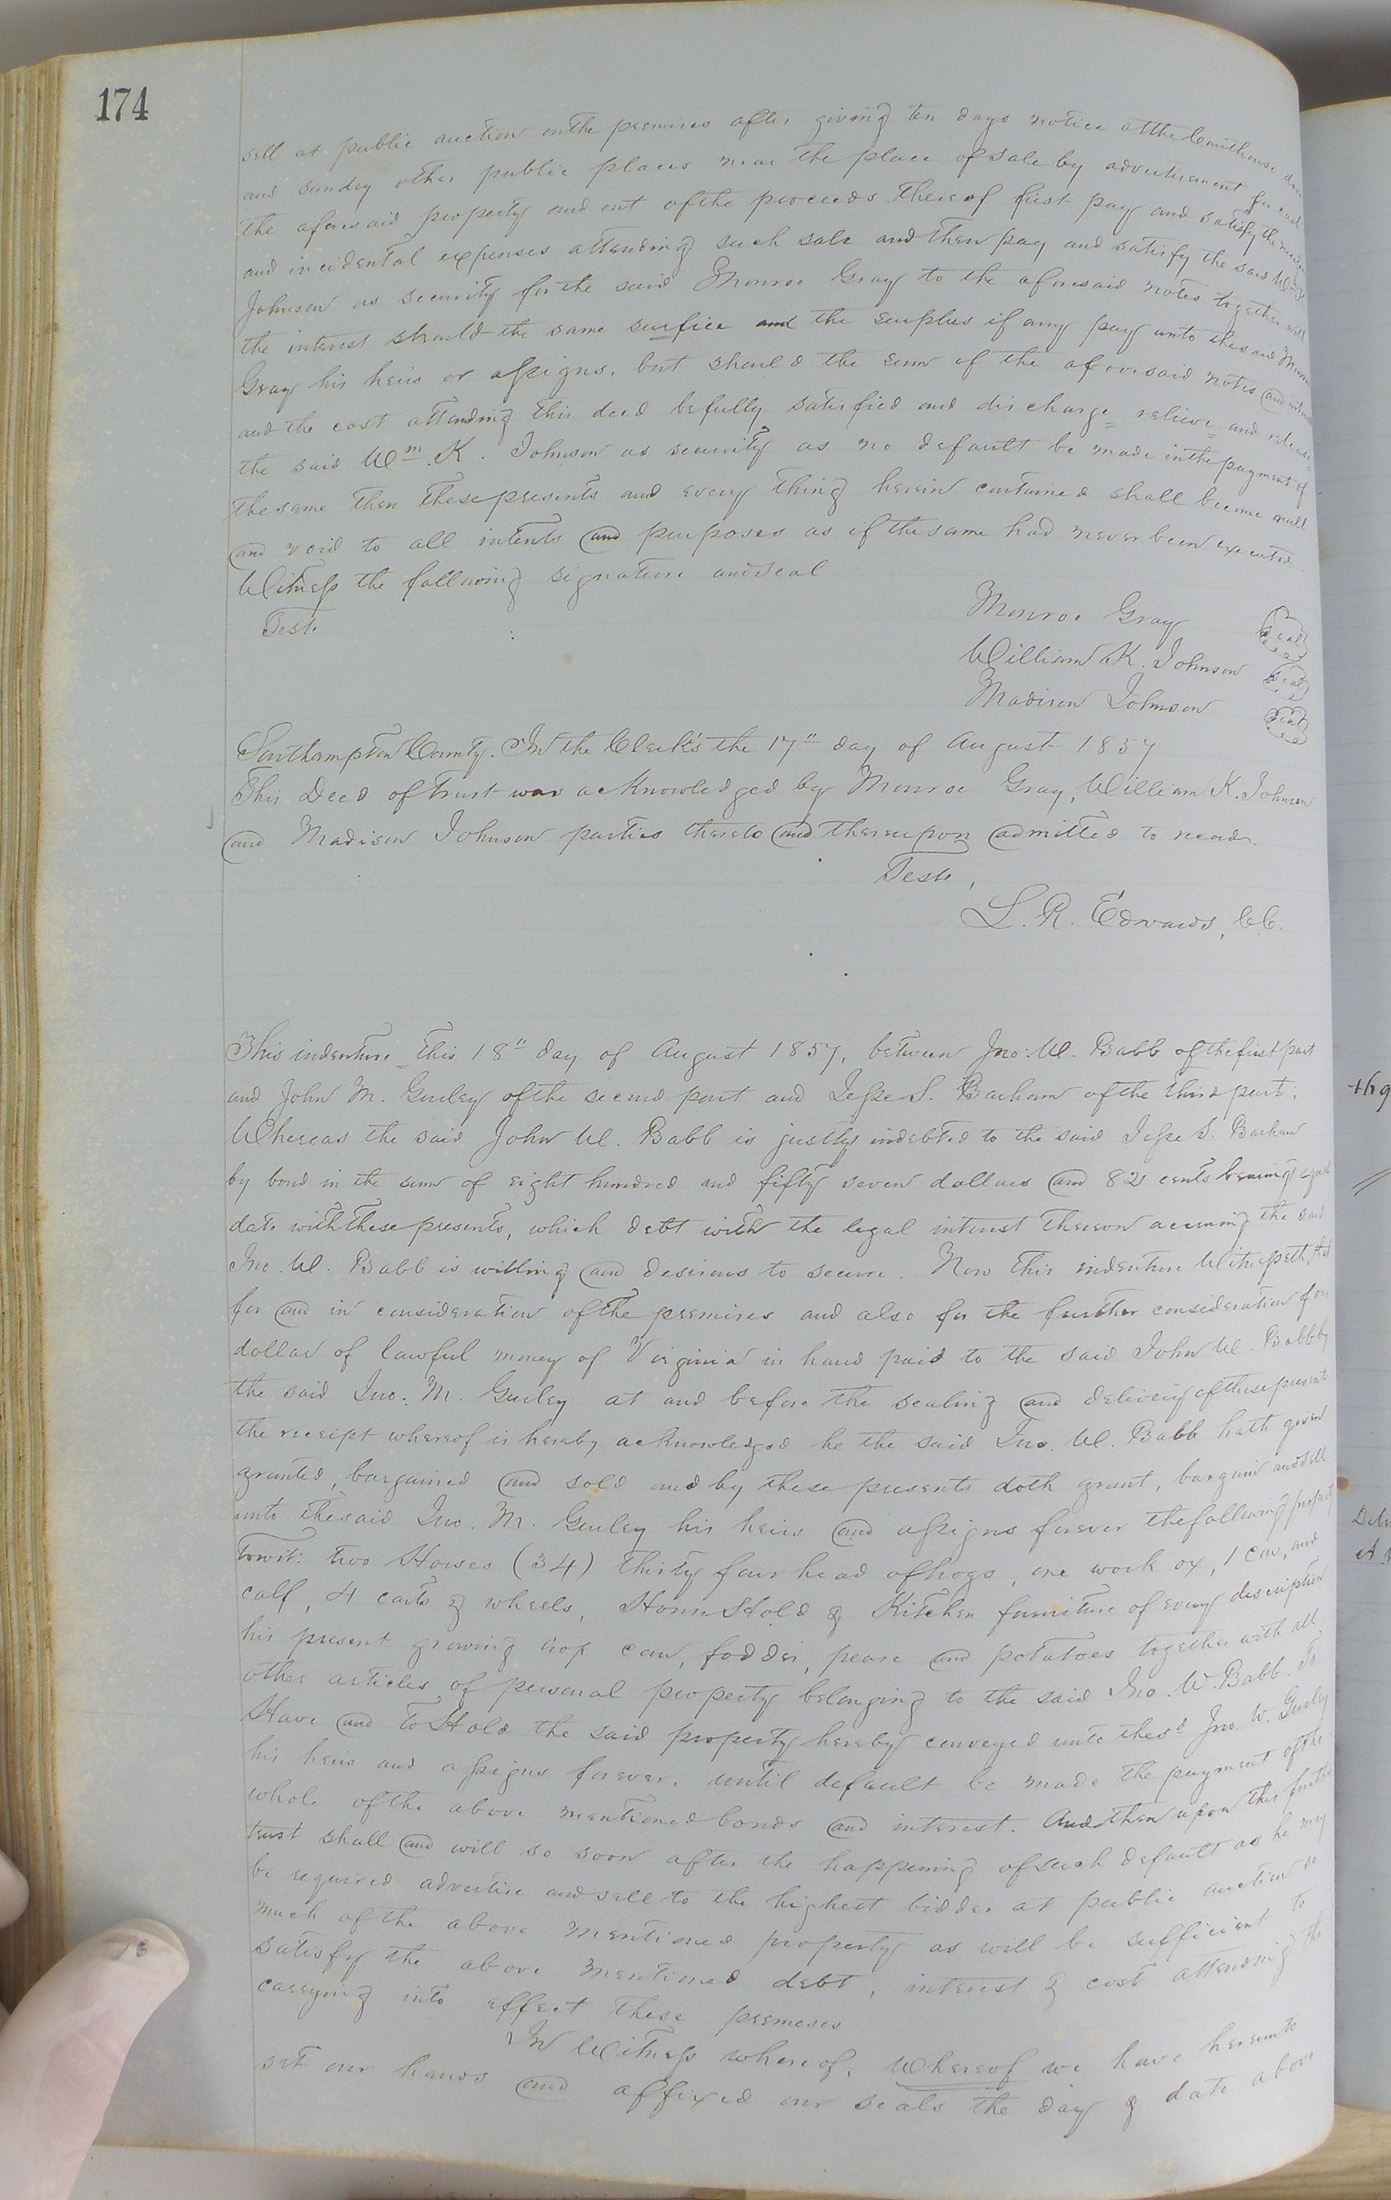 174
sell at public auction on the premises after giving ten days notice at the Courthouse door
and sundry other public places near the place of sale by advertisement for cash
the aforesaid property and out of the proceeds thereof first pay and satisfy the
and incidental expenses attending such sale and then pay and satisfy the said Wm K
Johnson as security for the said Monroe Gray to the aforesaid notes together with
the interest should the same surfice and the surplus if any pay unto the said Monroe
Gray his heirs or assigns, but should the sum of the aforesaid notes and interest
and the cost attending this deed be fully satisfied and discharge = relieve = and release
the said Wm. K. Johnson as security as no default be made in the payment of
the same then these presents and every thing herein contained shall become null
and void to all intents and purposes as if the same had never been executed.
Witness the following signature and seal
Teste
Monroe Gray Seal
William K. Johnson Seal
Madison Johnson Seal
Southampton County. In the Clerk's the 17" day of August 1857
This Deed of Trust was acknowledged by Monroe Gray, William K. Johnson
and Madison Johnson parties thereto and thereupon admitted to record.
Teste,
L. R. Edwards, CC.
This indenture = this 18" day of August 1857, between Jno. W. Babb of the first part
and John M. Gurley of the second part and Jesse S. Barham of the third part.
Whereas the said John W. Babb is justly indebted to the said Jesse S. Barham
by bond in the sum of eight hundred and fifty seven dollars and 82 cents bearing equal
date with these presents, which debt with the legal interest thereon accruing the said
Jno. W. Babb is willing and desirous to secure. Now this indenture Witnesseth, that
for and in consideration of the premises and also for the further consideration of one
dollar of lawful money of Virginia in hand paid to the said John W. Babb by
the said Jno. M. Gurley at and before the sealing and delivery of these presents
the receipt whereof is hereby acknowledged he the said Jno. W. Babb hath given
granted, bargained and sold and by these presents doth grant, bargain and sell
unto the said Jno. M. Gurley his heirs and assigns forever the following property
Towit: two Horses (34) thirty four head of hogs, one work ox, 1 cow, and
calf, 4 carts & wheels, House Hold & Kitchen furniture of every description
his present growing crop corn, fodder, pease and potatoes together with all
other articles of personal property belonging to the said Jno. W. Babb. To
Have and to Hold the said property hereby conveyed unto the sd Jno. W. Gurley
his heirs and assigns forever, until default be made the payment of the
whole of the above mentioned bonds and interest. And then upon this further
trust shall and will so soon after the happening of such default as he may
be required advertise and sell to the highest bidder at public auction so
much of the above mentioned property as will be sufficient to
satisfy the above mentioned debt, interest & cost attending the
carrying into effect these premeses
In Witness whereof, whereof we have hereunto
set our hands and affixed our seals the day & date above